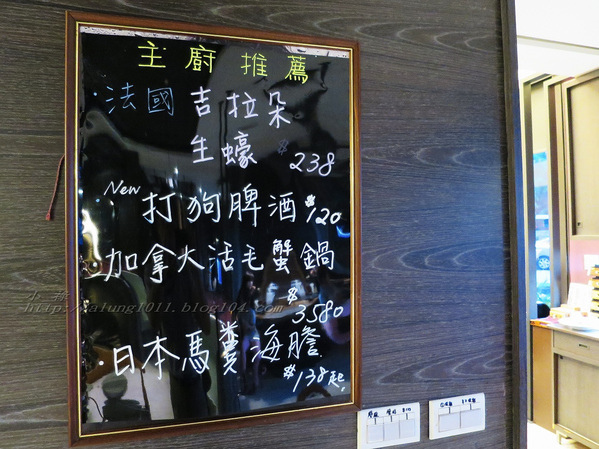 主廚推薦
·法國吉拉朵
生蠔 $238
New 打狗脾酒 $120
·加拿大活毛蟹鍋
$3580
·日本馬糞海膽
$138起
http://alung1011.blog104.com/